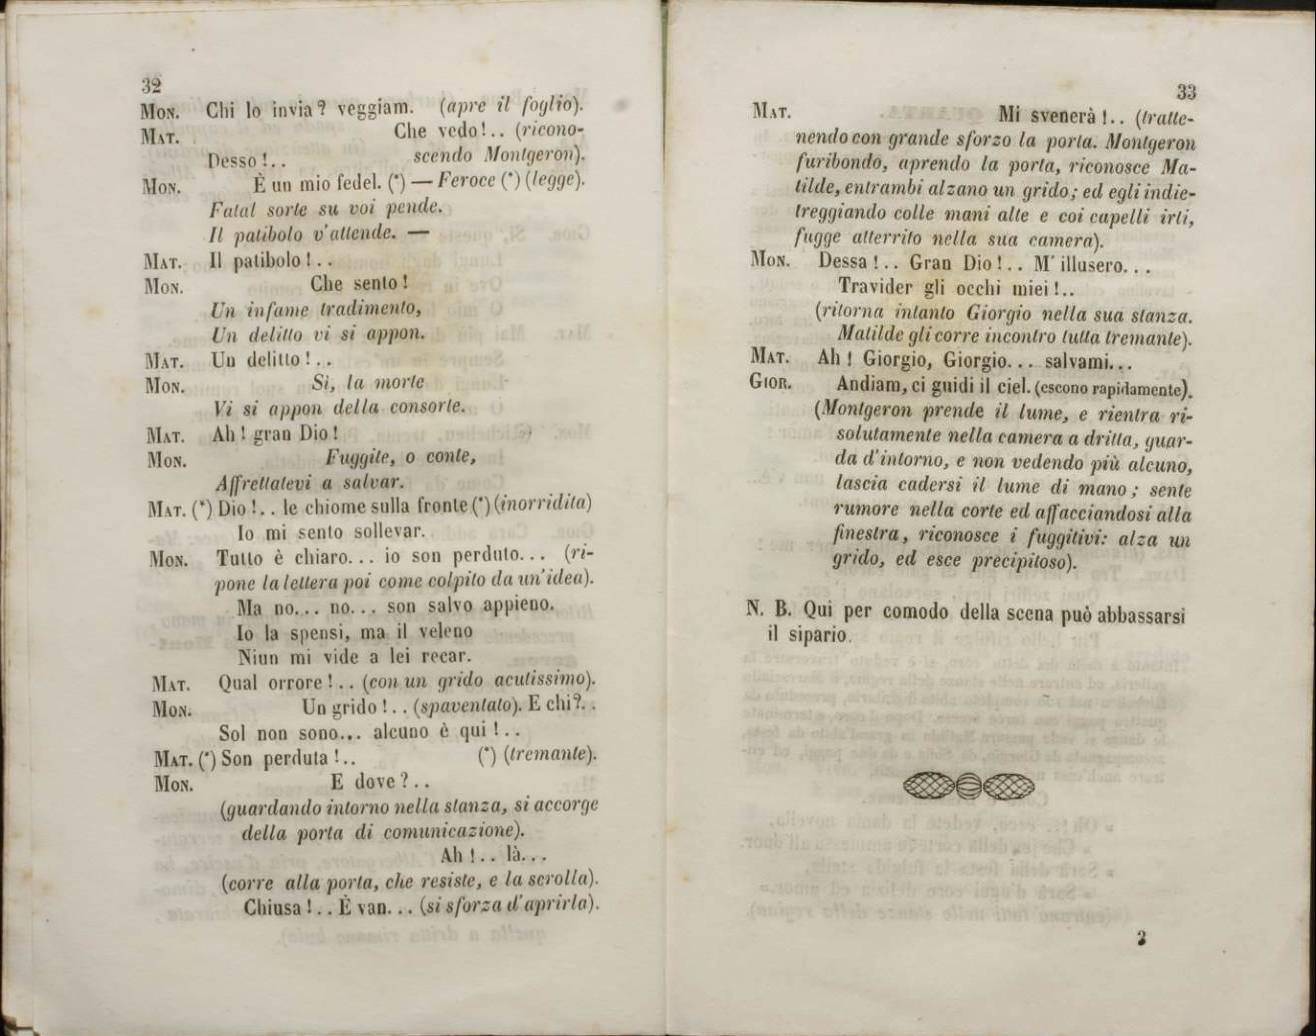 32
MON. Chi lo invia? veggiam. (apre il foglio).
MAT. Che vedo!.. (ricono-
Desso!.. scendo Montgeron).
MON. È un mio fedel. (*) — Feroce (*) (legge).
Fatal sorte su voi pende.
Il patibolo v'attende. —
MAT. Il patibolo!..
MON. Che sento!
Un infame tradimento,
Un delitto vi si appon.
MAT. Un delitto!..
MON. Sì, la morte
Vi si appon della consorte.
MAT. Ah! gran Dio!
MON. Fuggite, o conte,
Affrettatevi a salvar.
MAT. (*) Dio!.. le chiome sulla fronte (*) (inorridita)
Io mi sento sollevar.
MON. Tutto è chiaro... io son perduto... (ri-
pone la lettera poi come colpito da un'idea).
Ma no... no... son salvo appieno.
Io la spensi, ma il veleno
Niun mi vide a lei recar.
MAT. Qual orrore!.. (con un grido acutissimo).
MON. Un grido!.. (spaventato). E chi?..
Sol non sono... alcuno è qui!..
MAT. (*) Son perduta!.. (*) (tremante).
MON. E dove?..
(guardando intorno nella stanza, si accorge
della porta di comunicazione).
Ah!.. là...
(corre alla porta, che resiste, e la scrolla).
Chiusa!.. È van... (si sforza d'aprirla).
33
MAT. Mi svenerà!.. (tratte-
nendo con grande sforzo la porta. Montgeron
furibondo, aprendo la porta, riconosce Ma-
tilde, entrambi alzano un grido; ed egli indie-
treggiando colle mani alte e coi capelli irti,
fugge atterrito nella sua camera).
MON. Dessa!.. Gran Dio!.. M' illusero...
Travider gli occhi miei!..
(ritorna intanto Giorgio nella sua stanza.
Matilde gli corre incontro tutta tremante).
MAT. Ah! Giorgio, Giorgio... salvami...
GIOR. Andiam, ci guidi il ciel. (escono rapidamente).
(Montgeron prende il lume, e rientra ri-
solutamente nella camera a dritta, guar-
da d'intorno, e non vedendo più alcuno,
lascia cadersi il lume di mano; sente
rumore nella corte ed affacciandosi alla
finestra, riconosce i fuggitivi: alza un
grido, ed esce precipitoso).
N. B. Qui per comodo della scena può abbassarsi
il sipario.